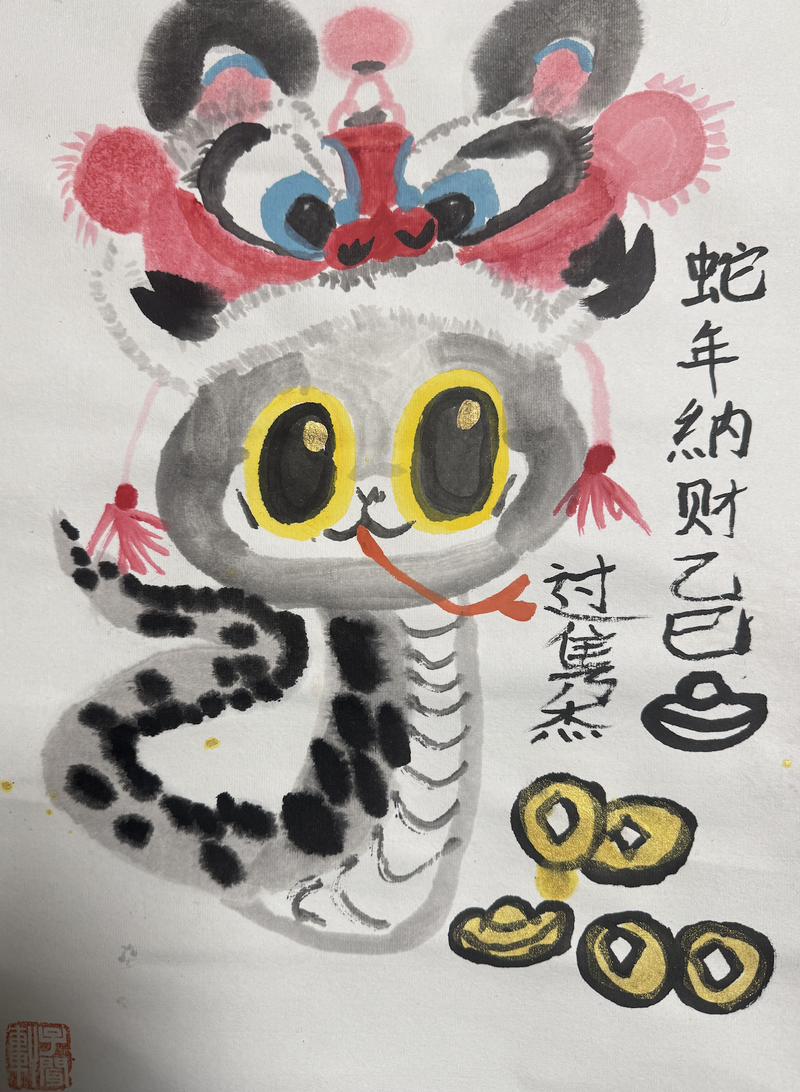 蛇年納财乙巳
过隽杰